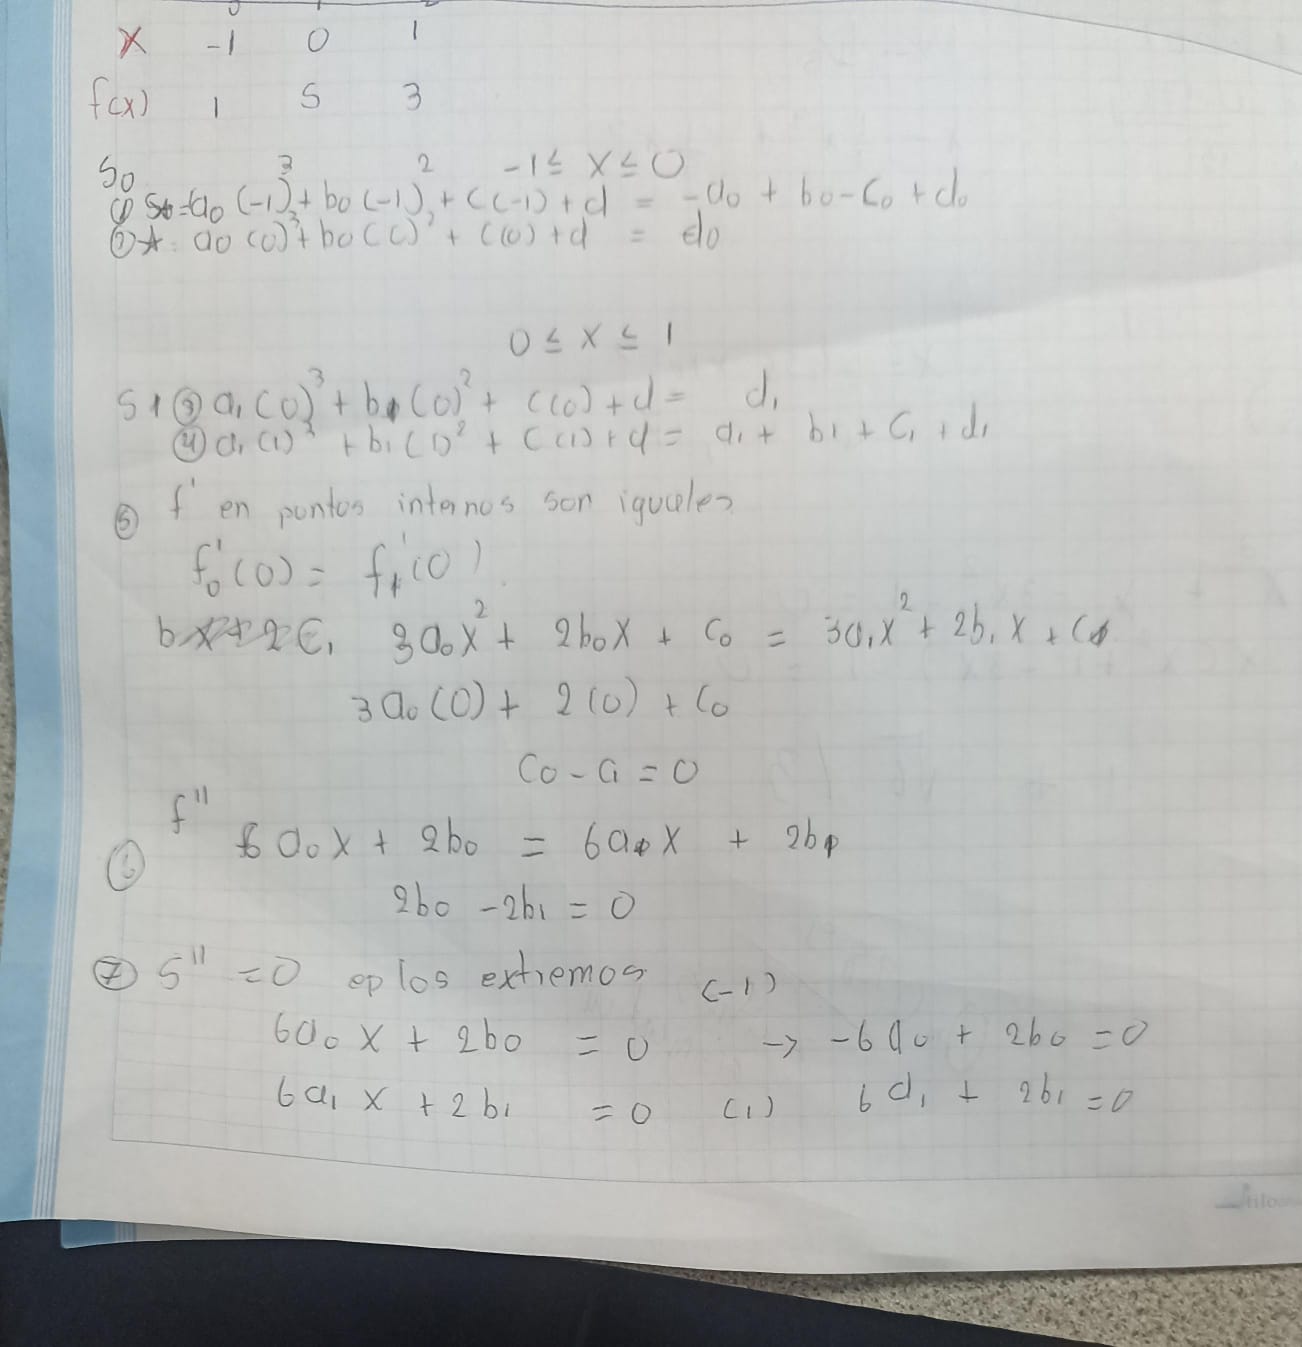 x -1 0 1
f(x) 1 5 3
S0 -1 ≤ x ≤ 0
① S0 = a0 (-1)³ + b0 (-1)² + C(-1) + d = -a0 + b0 - C0 + d0
② a0 (0)³ + b0 (0)² + C(0) + d = d0
0 ≤ x ≤ 1
S1 ③ a1 (0)³ + b1 (0)² + C(0) + d = d1
④ a1 (1)³ + b1 (1)² + C(1) + d = a1 + b1 + C1 + d1
⑤ f' en puntos internos son iguales
f0'(0) = f1'(0)
3a0x² + 2b0x + C0 = 3a1x² + 2b1x + C1
3a0(0) + 2(0) + C0
C0 - C1 = 0
f''
⑥ 6a0x + 2b0 = 6a1x + 2b1
2b0 - 2b1 = 0
⑦ S'' = 0 en los extremos (-1)
6a0x + 2b0 = 0 → -6a0 + 2b0 = 0
6a1x + 2b1 = 0 (1) 6a1 + 2b1 = 0